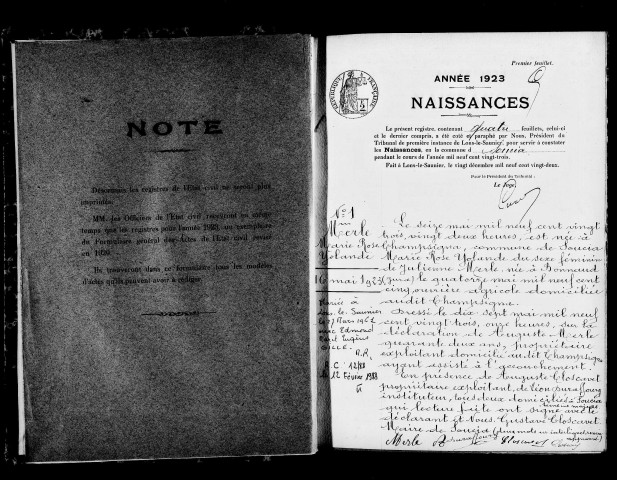 NOTE
Désormais les registres de l'Etat civil ne seront plus
imprimés.
MM. les Officiers de l'Etat civil recevront en même
temps que les registres pour l'année 1923, un exemplaire
du Formulaire général des Actes de l'Etat civil
en 1920.
Ils trouveront dans ce formulaire tous les modèles
d'actes qu'ils peuvent avoir à rédiger.
Premier feuillet.
ANNÉE 1923
NAISSANCES
RÉPUBLIQUE FRANÇAISE
Le présent registre, contenant quatre feuillets, celui-ci
et le dernier compris, a été coté et paraphé par Nous, Président du
Tribunal de première instance de Lons-le-Saunier, pour servir à constater
les Naissances, en la commune de Soucia
pendant le cours de l'année mil neuf cent vingt-trois.
Fait à Lons-le-Saunier, le vingt décembre mil neuf cent vingt-deux.
Pour le Président du Tribunal :
Le Juge,
No 1
Merle
Marie Rose
Yolande
16 mai 1923
Mariée à
Lons-le-Saunier
le 17 Mars 1962
avec Edmond
Paul Eugène
R.R.
R.C. 12/88
le 12 Février 1988
Le seize mai mil neuf cent vingt
trois, vingt deux heures, est née à
Champsigna, commune de Soucia
Marie Rose Yolande du sexe féminin
de Julienne Merle, née à Bonnaud
(Jura) le quatorze mai mil neuf cent
cinq, ouvrière agricole domiciliée
audit Champsigna.
Dressé le dix sept mai mil neuf
cent vingt trois, onze heures, sur la
déclaration de Auguste Merle
quarante deux ans, propriétaire
exploitant domicilié audit Champsigna
ayant assisté à l'accouchement.
En présence de Auguste Closcavet
propriétaire exploitant, de Léon Duraffourg
instituteur, tous deux domiciliés à Soucia
qui lecture faite ont signé avec le
déclarant et Nous, Gustave Closcavet
Maire de Soucia
Merle Duraffourg Closcavet